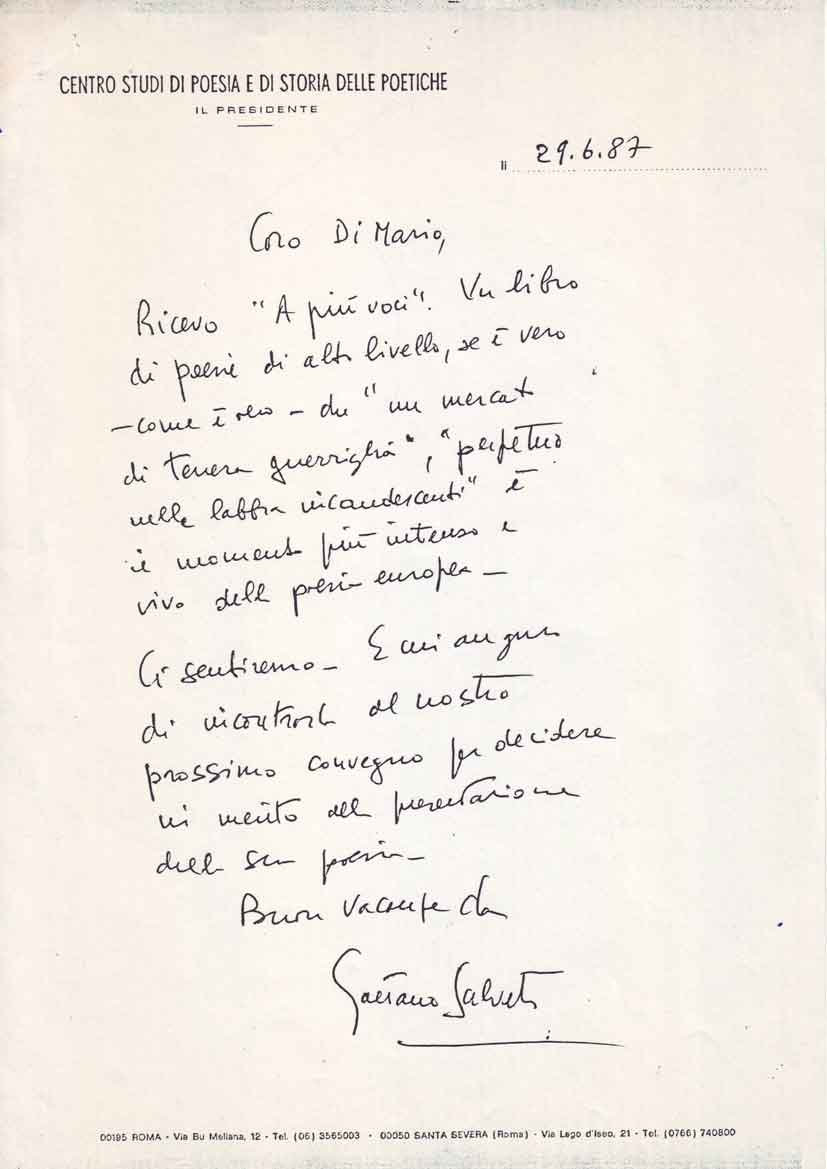 CENTRO STUDI DI POESIA E DI STORIA DELLE POETICHE
IL PRESIDENTE
li 29.6.87
Caro Di Mario,
Ricevo "A più voci". Un libro
di poesie di alto livello, se è vero
– come è vero – che "un mercato
di tenera guerriglia", "perpetuo
nelle labbra incandescenti" è
il momento più intenso e
vivo della poesia europea –
Ci sentiremo – E mi auguro
di incontrarla al nostro
prossimo convegno per decidere
in merito alla presentazione
della sua poesia –
Buone vacanze da
Gaetano Salveti
00195 ROMA - Via Bu Meliana, 12 - Tel. (06) 3565003 - 00050 SANTA SEVERA (Roma) - Via Lago d'Iseo, 21 - Tel. (0766) 740800